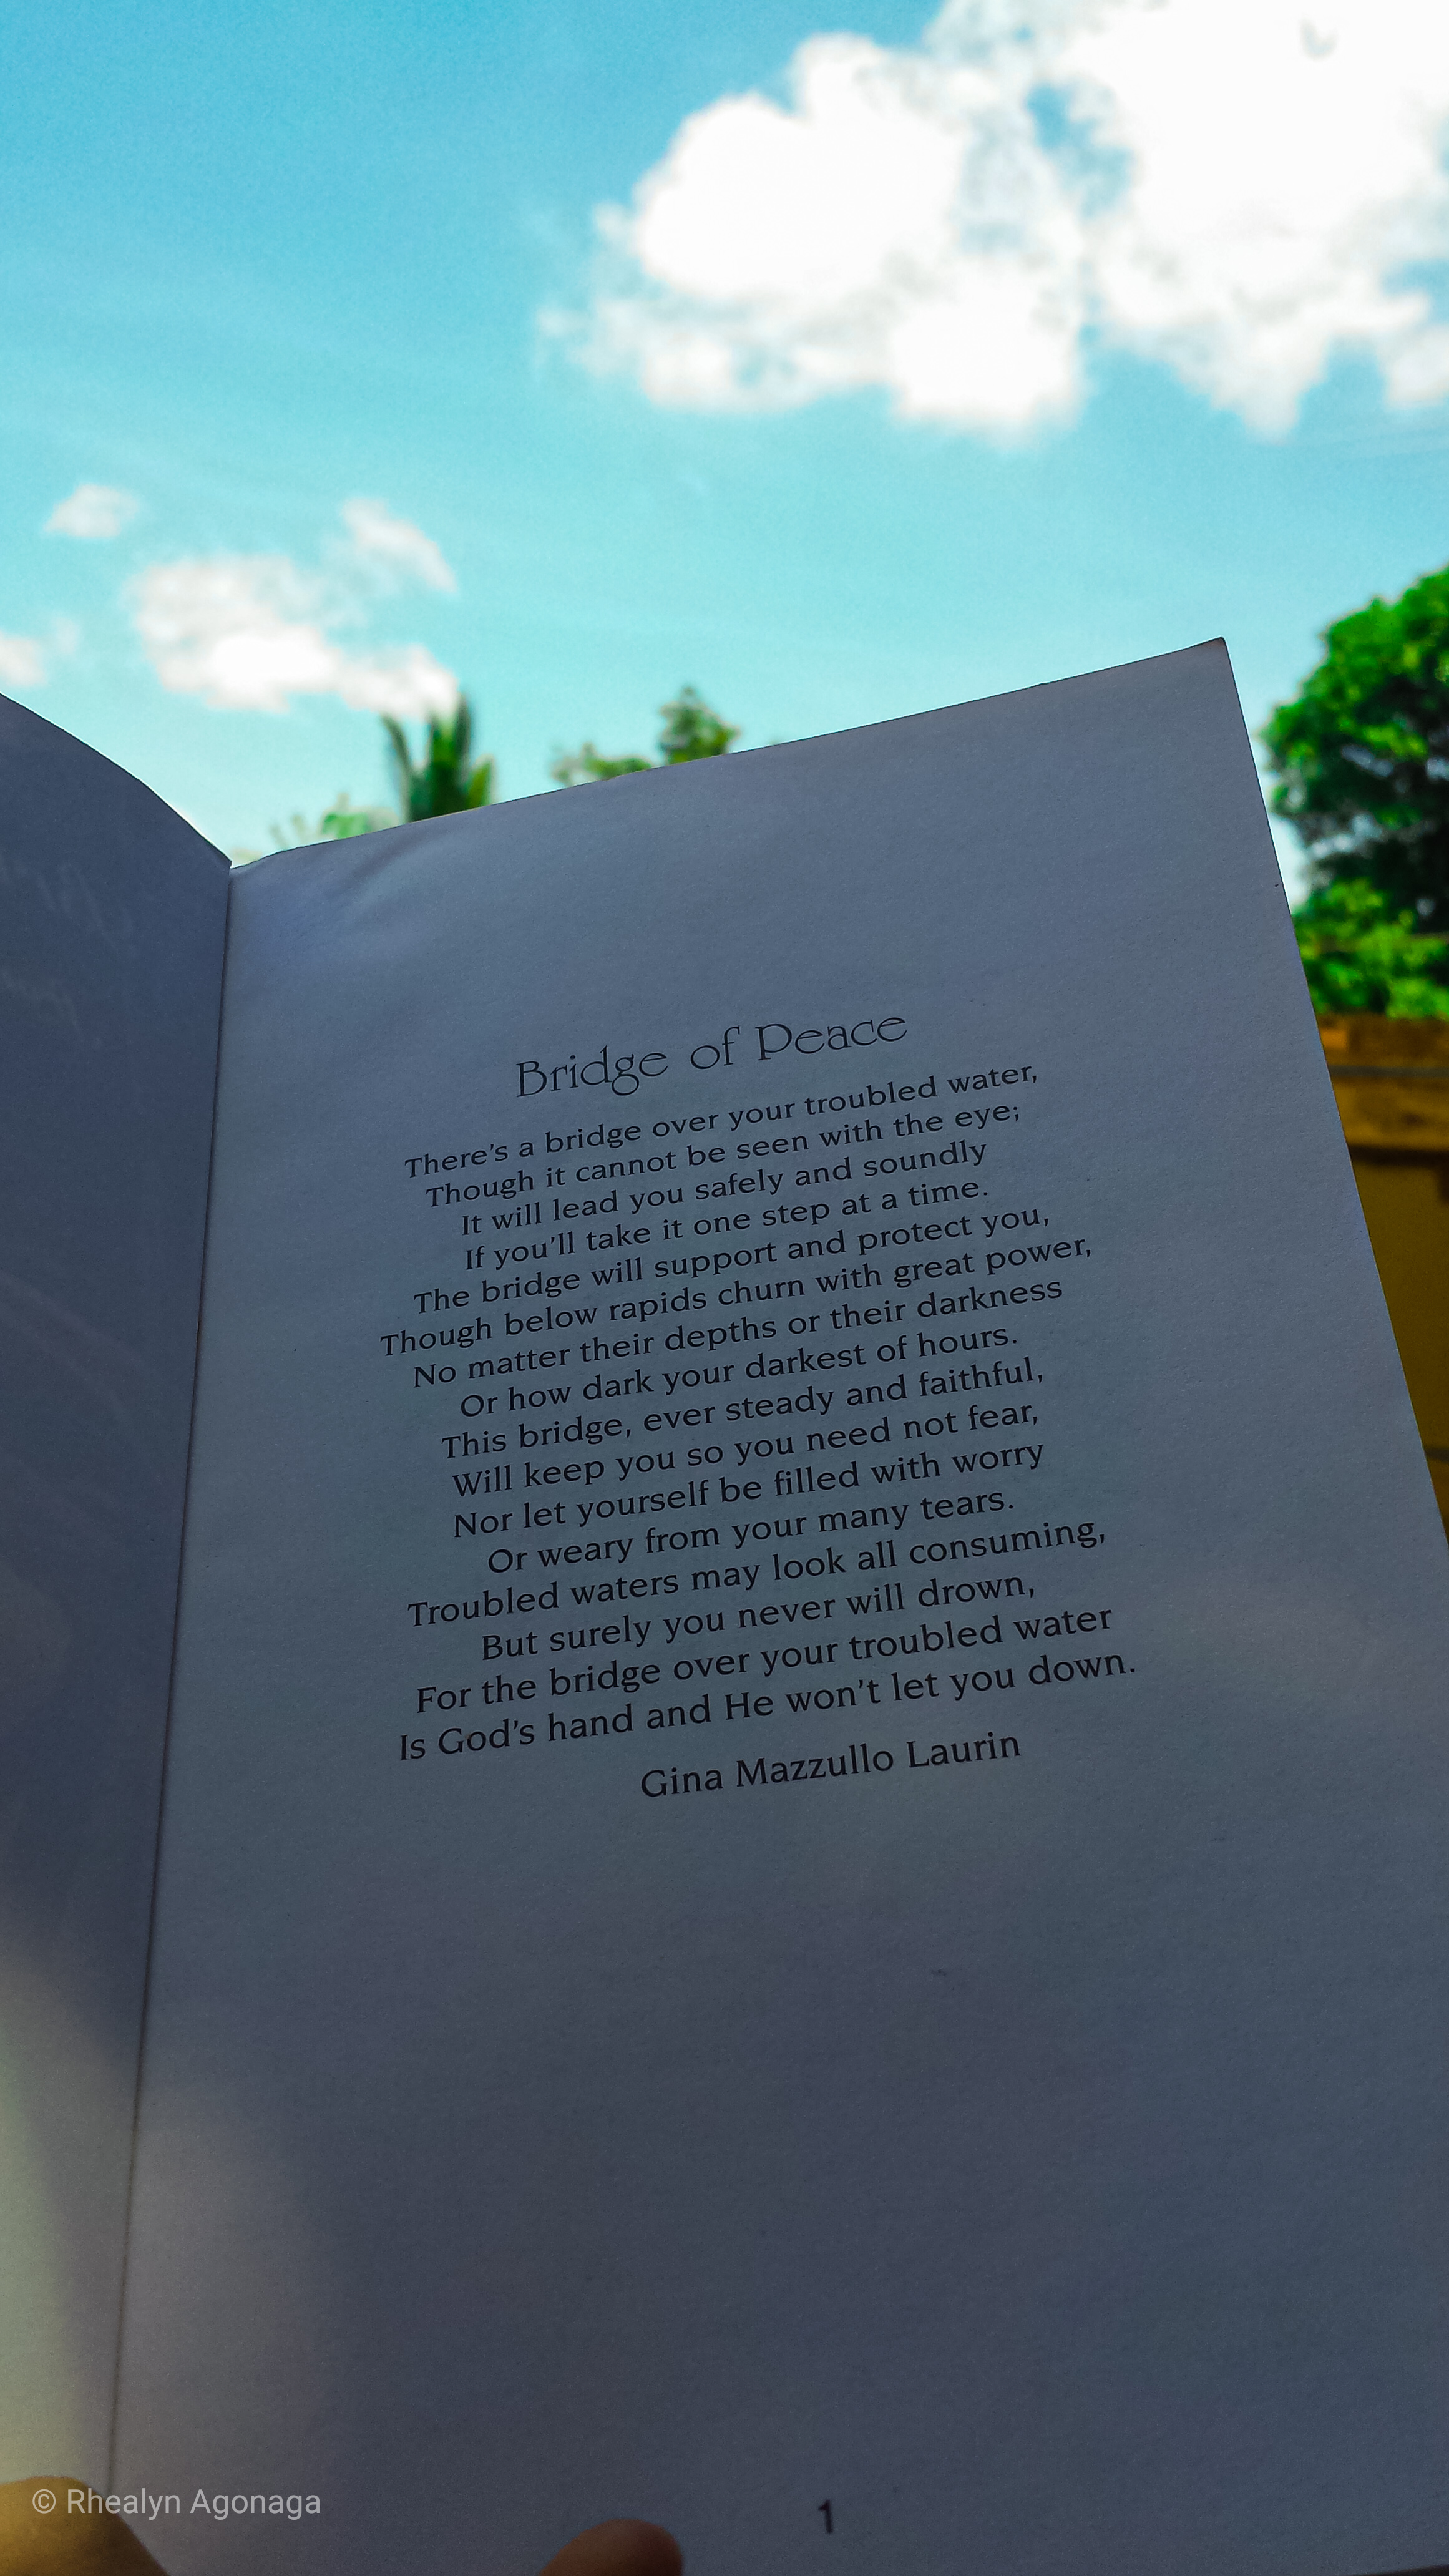 Bridge of Peace
There's a bridge over your troubled water,
Though it cannot be seen with the eye;
It will lead you safely and soundly
If you'll take it one step at a time.
The bridge will support and protect you,
Though below rapids churn with great power,
No matter their depths or their darkness
Or how dark your darkest of hours.
This bridge, ever steady and faithful,
Will keep you so you need not fear,
Nor let yourself be filled with worry
Or weary from your many tears.
Troubled waters may look all consuming,
But surely you never will drown,
For the bridge over your troubled water
Is God's hand and He won't let you down.
Gina Mazzullo Laurin
1
© Rhealyn Agonaga